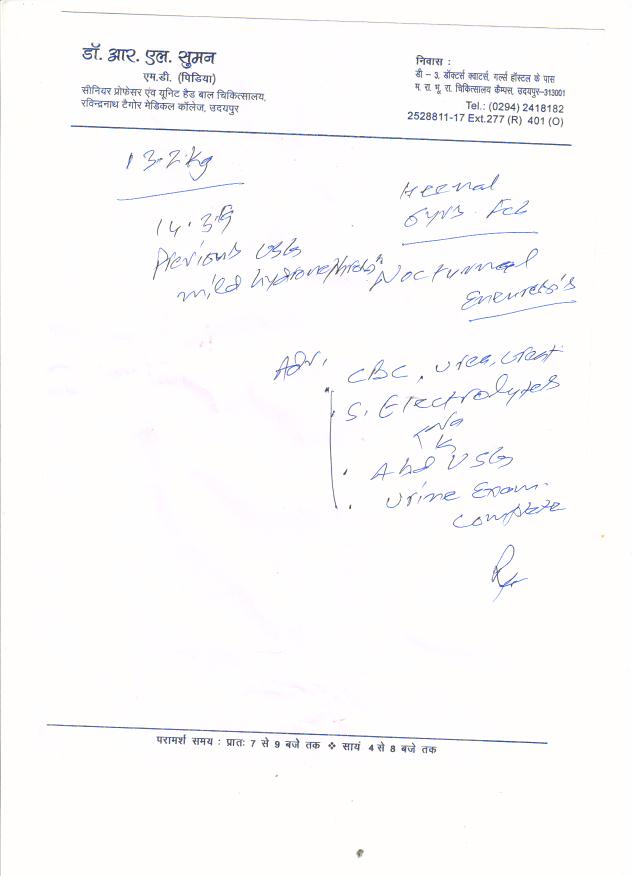 डॉ. आर. एल. सुमन
एम.डी. (पिडिया)
सीनियर प्रोफेसर एंव यूनिट हैड बाल चिकित्सालय,
रविन्द्रनाथ टैगोर मेडिकल कॉलेज, उदयपुर
निवास :
डी – 3, डॉक्टर्स क्वाटर्स, गर्ल्स हॉस्टल के पास
म. रा. भू. रा. चिकित्सालय कैम्पस, उदयपुर–313001
Tel.: (0294) 2418182
2528811-17 Ext.277 (R) 401 (O)
13.2 kg
Heenal
6yrs.
14.3
Previous USG
mild hydronephrosis
Nocturnal
Enuresis
Adv.
CBC, Urea, Creat
S. Electrolytes
Na
K
Abd USG
Urine Exam.
Complete
परामर्श समय : प्रातः 7 से 9 बजे तक ❖ सायं 4 से 8 बजे तक